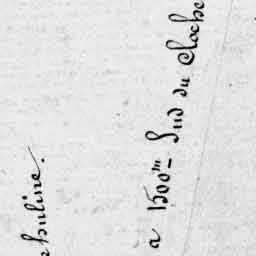 huline.
a 1500m Sud du Cloche